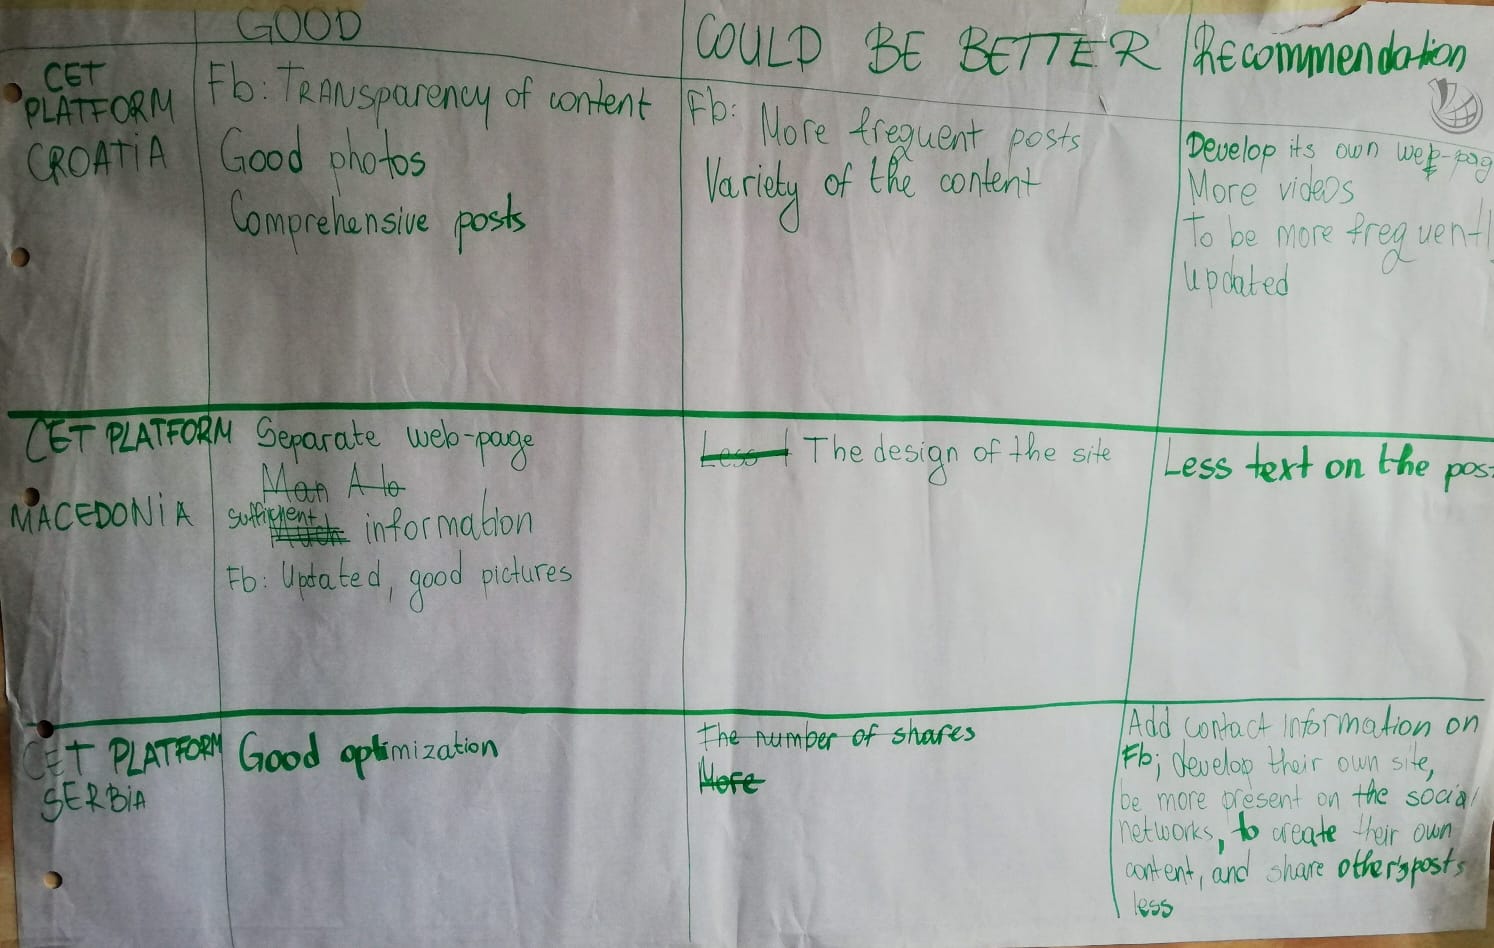 GOOD
COULD BE BETTER
Recommendation
CET
PLATFORM
CROATIA
Fb: TRANSparency of content
Good photos
Comprehensive posts
Fb: More frequent posts
Variety of the content
Develop its own web-pag
More videos
To be more frequentl
updated
CET PLATFORM
MACEDONIA
Separate web-page
Man A lo
sufficient Much information
Fb: Uptated, good pictures
Less The design of the site
Less text on the pos
CET PLATFORM
SERBIA
Good optimization
The number of shares
More
Add contact information on
Fb; develop their own site,
be more present on the social
networks, to create their own
content, and share other's posts
less